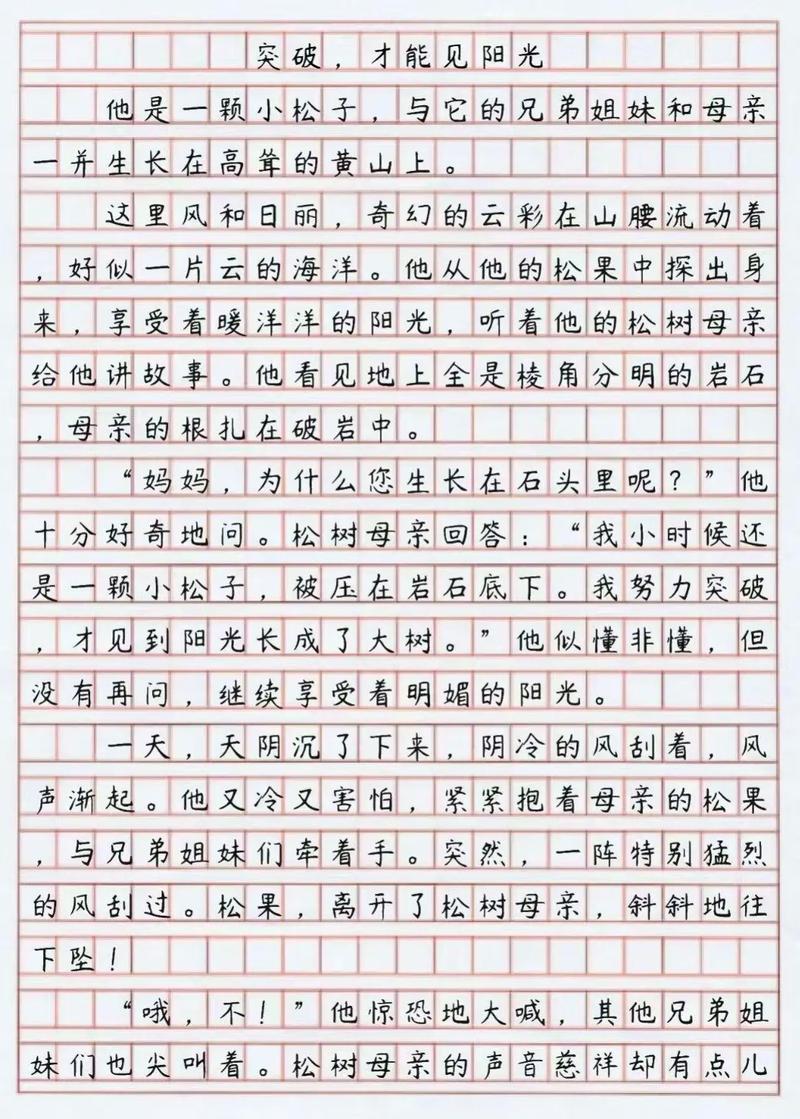 突破，才能见阳光
他是一颗小松子，与它的兄弟姐妹和母亲
一并生长在高耸的黄山上。
这里风和日丽，奇幻的云彩在山腰流动着
，好似一片云的海洋。他从他的松果中探出身
来，享受着暖洋洋的阳光，听着他的松树母亲
给他讲故事。他看见地上全是棱角分明的岩石
，母亲的根扎在破岩中。
“妈妈，为什么您生长在石头里呢？”他
十分好奇地问。松树母亲回答：“我小时候还
是一颗小松子，被压在岩石底下。我努力突破
，才见到阳光长成了大树。”他似懂非懂，但
没有再问，继续享受着明媚的阳光。
一天，天阴沉了下来，阴冷的风刮着，风
声渐起。他又冷又害怕，紧紧抱着母亲的松果
，与兄弟姐妹们牵着手。突然，一阵特别猛烈
的风刮过。松果，离开了松树母亲，斜斜地往
下坠！
“哦，不！”他惊恐地大喊，其他兄弟姐
妹们也尖叫着。松树母亲的声音慈祥却有点儿